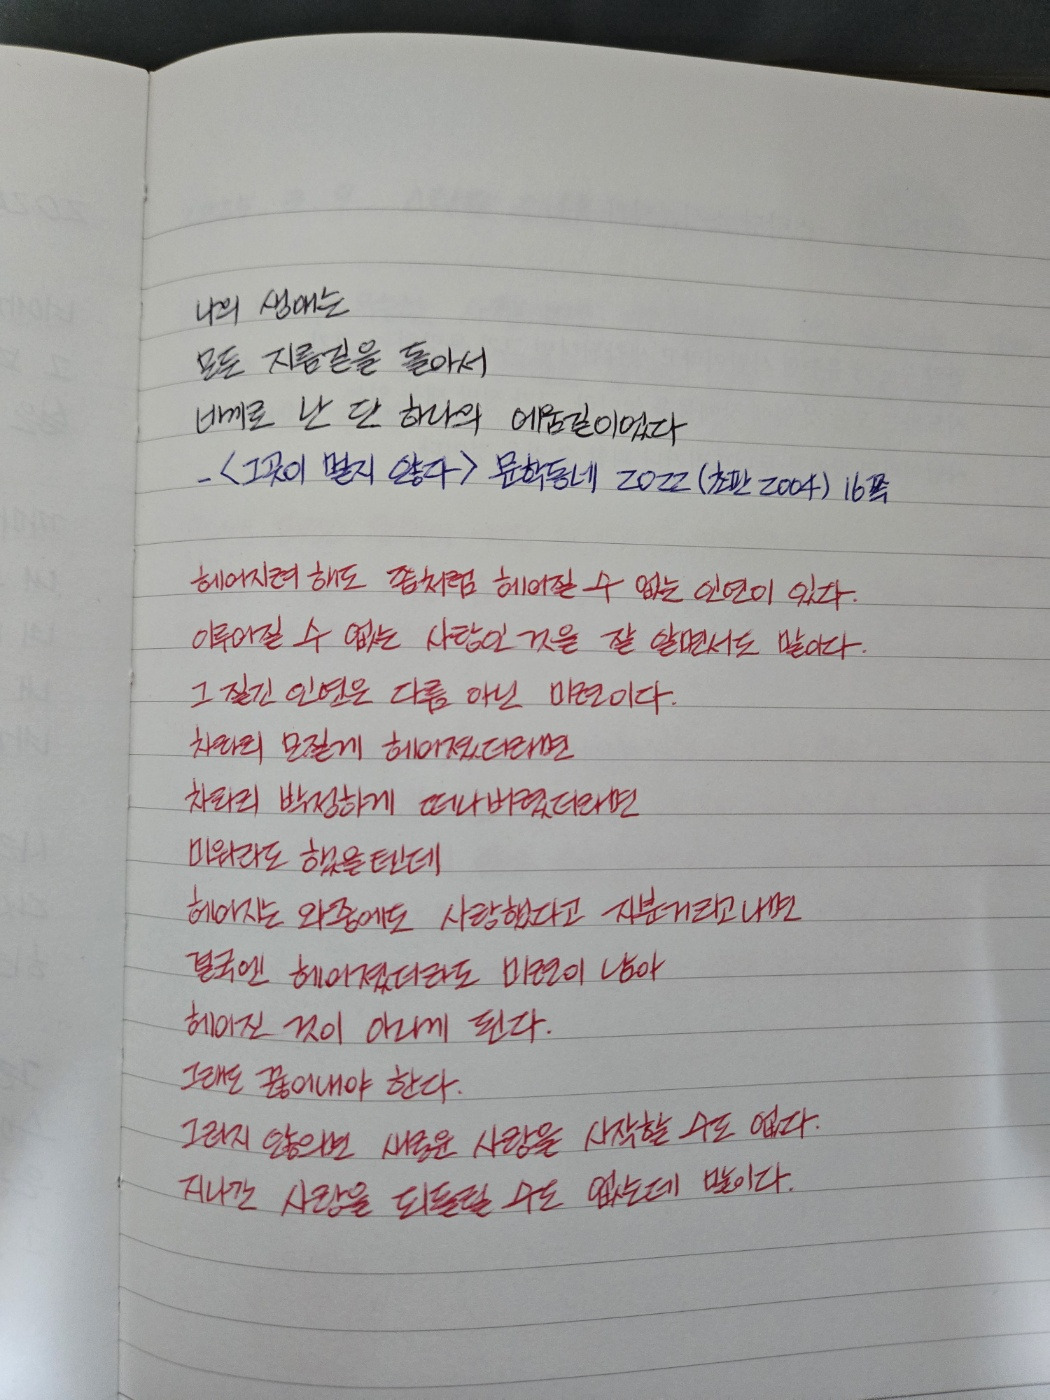 나의 생애는
모든 지름길을 돌아서
네게로 난 단 하나의 에움길이었다
-<그곳이 멀지 않다> 문학동네 2022(초판 2004) 16쪽
헤어지려 해도 좀처럼 헤어질 수 없는 인연이 있다.
이루어질 수 없는 사랑인 것을 잘 알면서도 말이다.
그 질긴 인연은 다름 아닌 미련이다.
차라리 모질게 헤어졌더라면
차라리 박정하게 떠나버렸더라면
미워라도 했을텐데
헤어지는 와중에도 사랑했다고 지분거리고나면
결국엔 헤어졌더라도 미련이 남아
헤어진 것이 아니게 된다.
그래도 끊어내야 한다.
그러지 않으면 새로운 사랑을 시작할 수도 없다.
지나간 사랑을 되돌릴 수도 없는데 말이다.